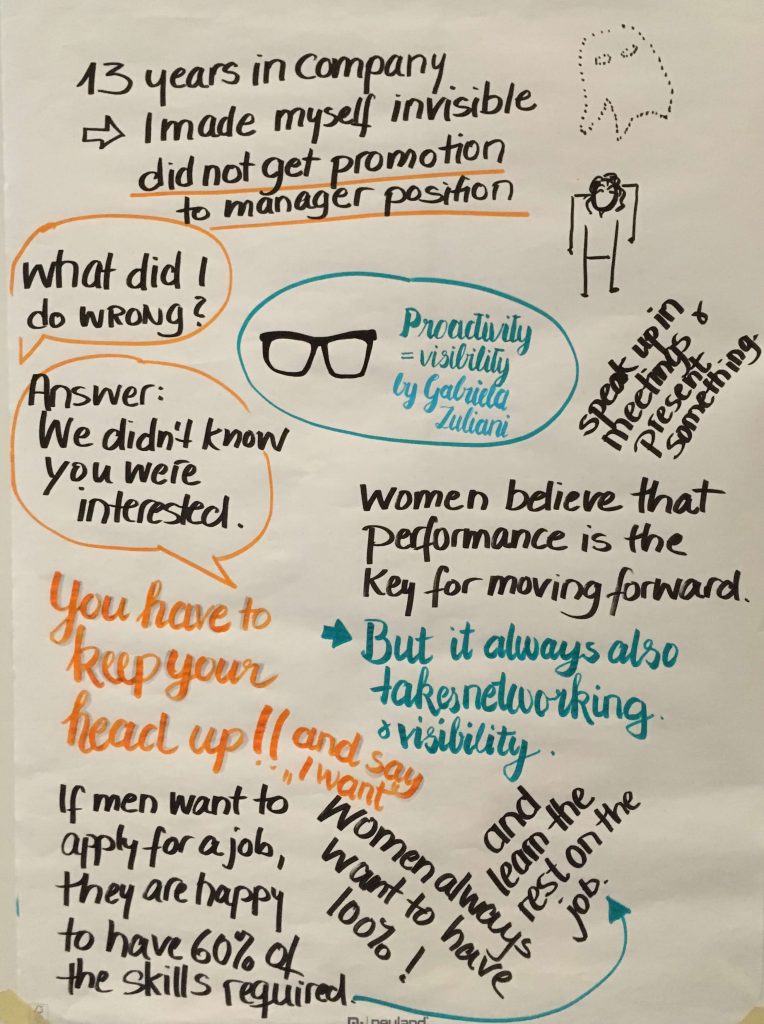 13 years in Company
⇨ I made myself invisible
did not get promotion
to manager position
What did I
do WRONG?
Answer:
We didn't know
you were
interested.
Proactivity
= visibility
by Gabriela
Zuliani
speak up in
meetings &
present
something.
Women believe that
performance is the
Key for moving forward.
You have to
keep your
head up!! (and say
„I want"
➔ But it always also
takes networking.
& visibility.
If men want to
apply for a job,
they are happy
to have 60% of
the skills required.
and
learn the
rest on the
job.
Women always
want to have
100%!
neuland